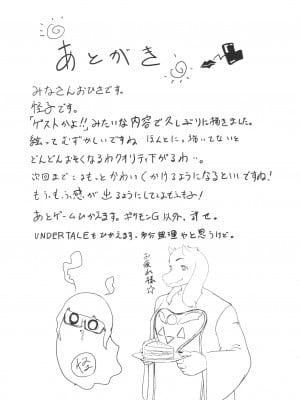 あとがき
みなさんおひさです。
怪子です。
「ゲストかよ!!」みたいな内容で久しぶりに描きました。
絵ってむずかしいですね ほんとに。描いてないと
どんどんおそくなるわクオリティ下がるわ…。
次回までにはもっとかわいくかけるようになるといいですね!
もふもふ感が出るようにしていきたいもふ!
あとゲームひかえます。ポケモンGO以外、許せ。
UNDERTALEもひかえます。多分無理やと思うけど。
お疲れ様☆
怪